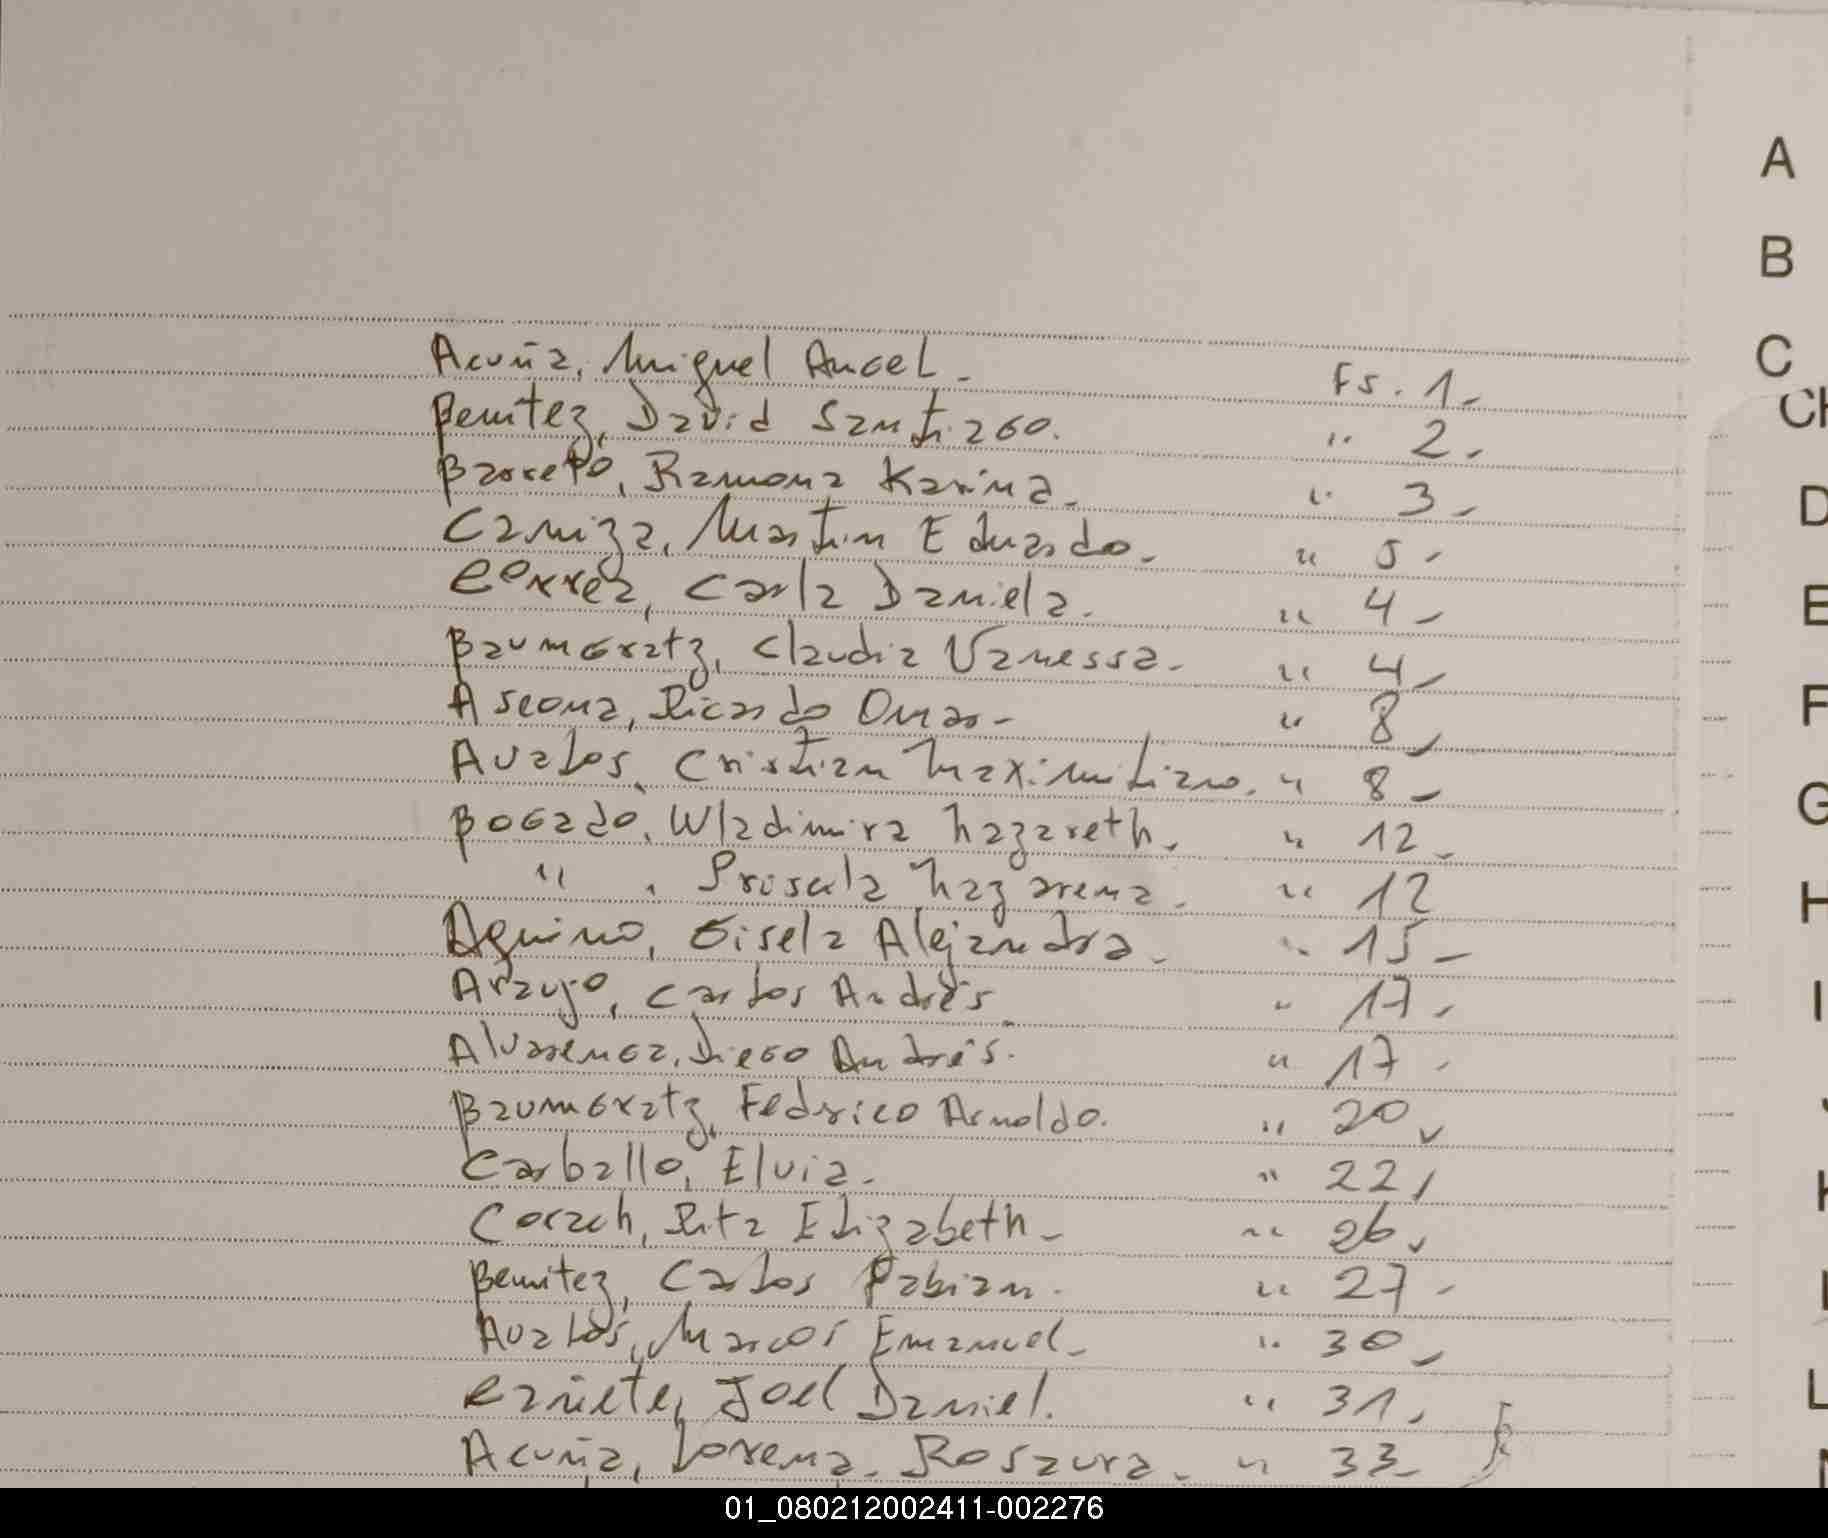 Acuña, Miguel Angel. Fs. 1.
Benitez, David Santiago. " 2.
Barreto, Ramona Karina. " 3.
Caniza, Martin Eduardo. " 5.
Correa, Carla Daniela. " 4.
Baumgratz, Claudia Vanessa. " 4.
Ascona, Ricardo Omar. " 8.
Avalos, Cristian Maximiliano. " 8.
Bogado, Wladimira Nazareth. " 12.
" , Priscila Nazarena. " 12
Aquino, Gisela Alejandra. " 15.
Araujo, Carlos Andrés. " 17.
Alvarenga, Diego Andrés. " 17.
Baumgratz, Federico Arnoldo. " 20,
Carballo, Elvia. " 22,
Corach, Rita Elizabeth. " 26,
Benitez, Carlos Fabian. " 27.
Avalos, Marcos Emanuel. " 30.
Cañete, Joel Daniel. " 31,
Acuña, Lorena Rosaura. " 33.
A
B
C
CH
D
E
F
G
H
I
L
01_080212002411-002276